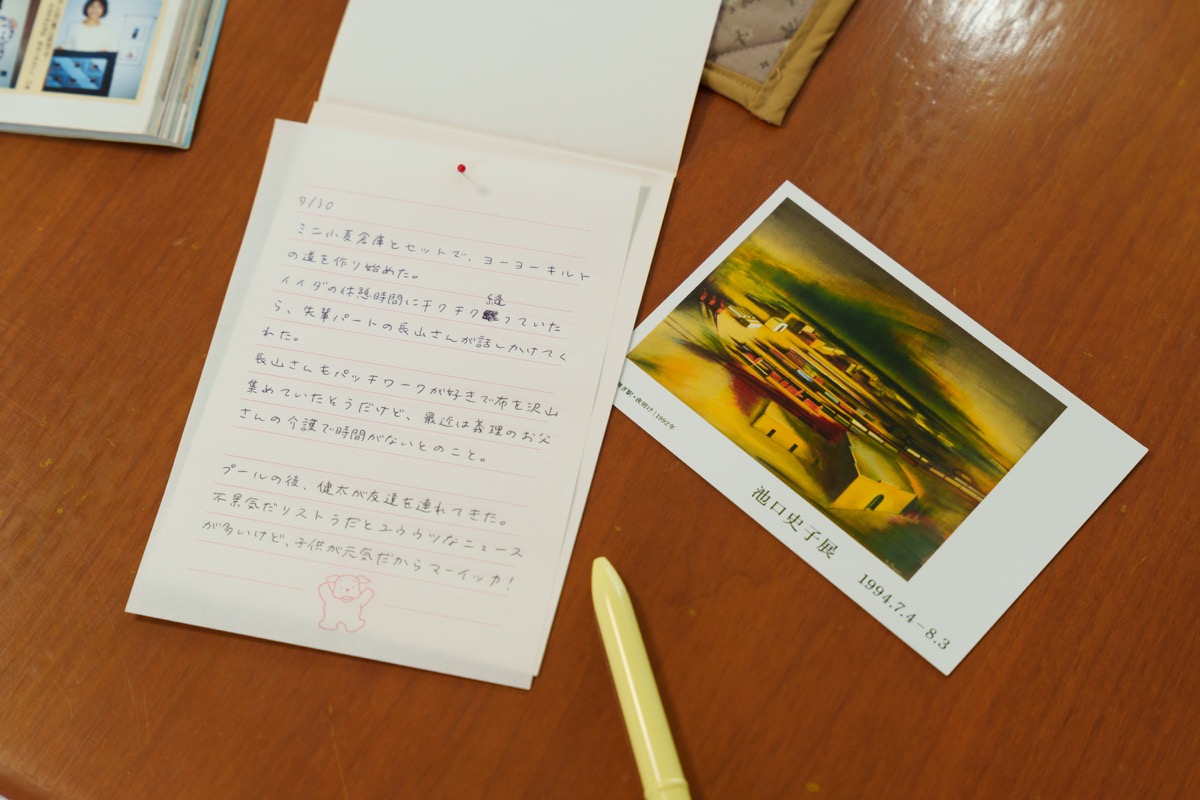 9/30
ミニ小麦倉庫とセットで、ヨーヨーキルト
の道を作り始めた。
イイダの休憩時間にチクチク縫っていた
ら、先輩パートの長山さんが話しかけてく
れた。
長山さんもパッチワークが好きで布を沢山
集めていたそうだけど、最近は義理のお父
さんの介護で時間がないとのこと。
プールの後、健太が友達を連れてきた。
不景気だリストラだとユウウツなニュース
が多いけど、子供が元気だからマーイッカ!
夜明け | 1992年
池口史子展
1994.7.4–8.3